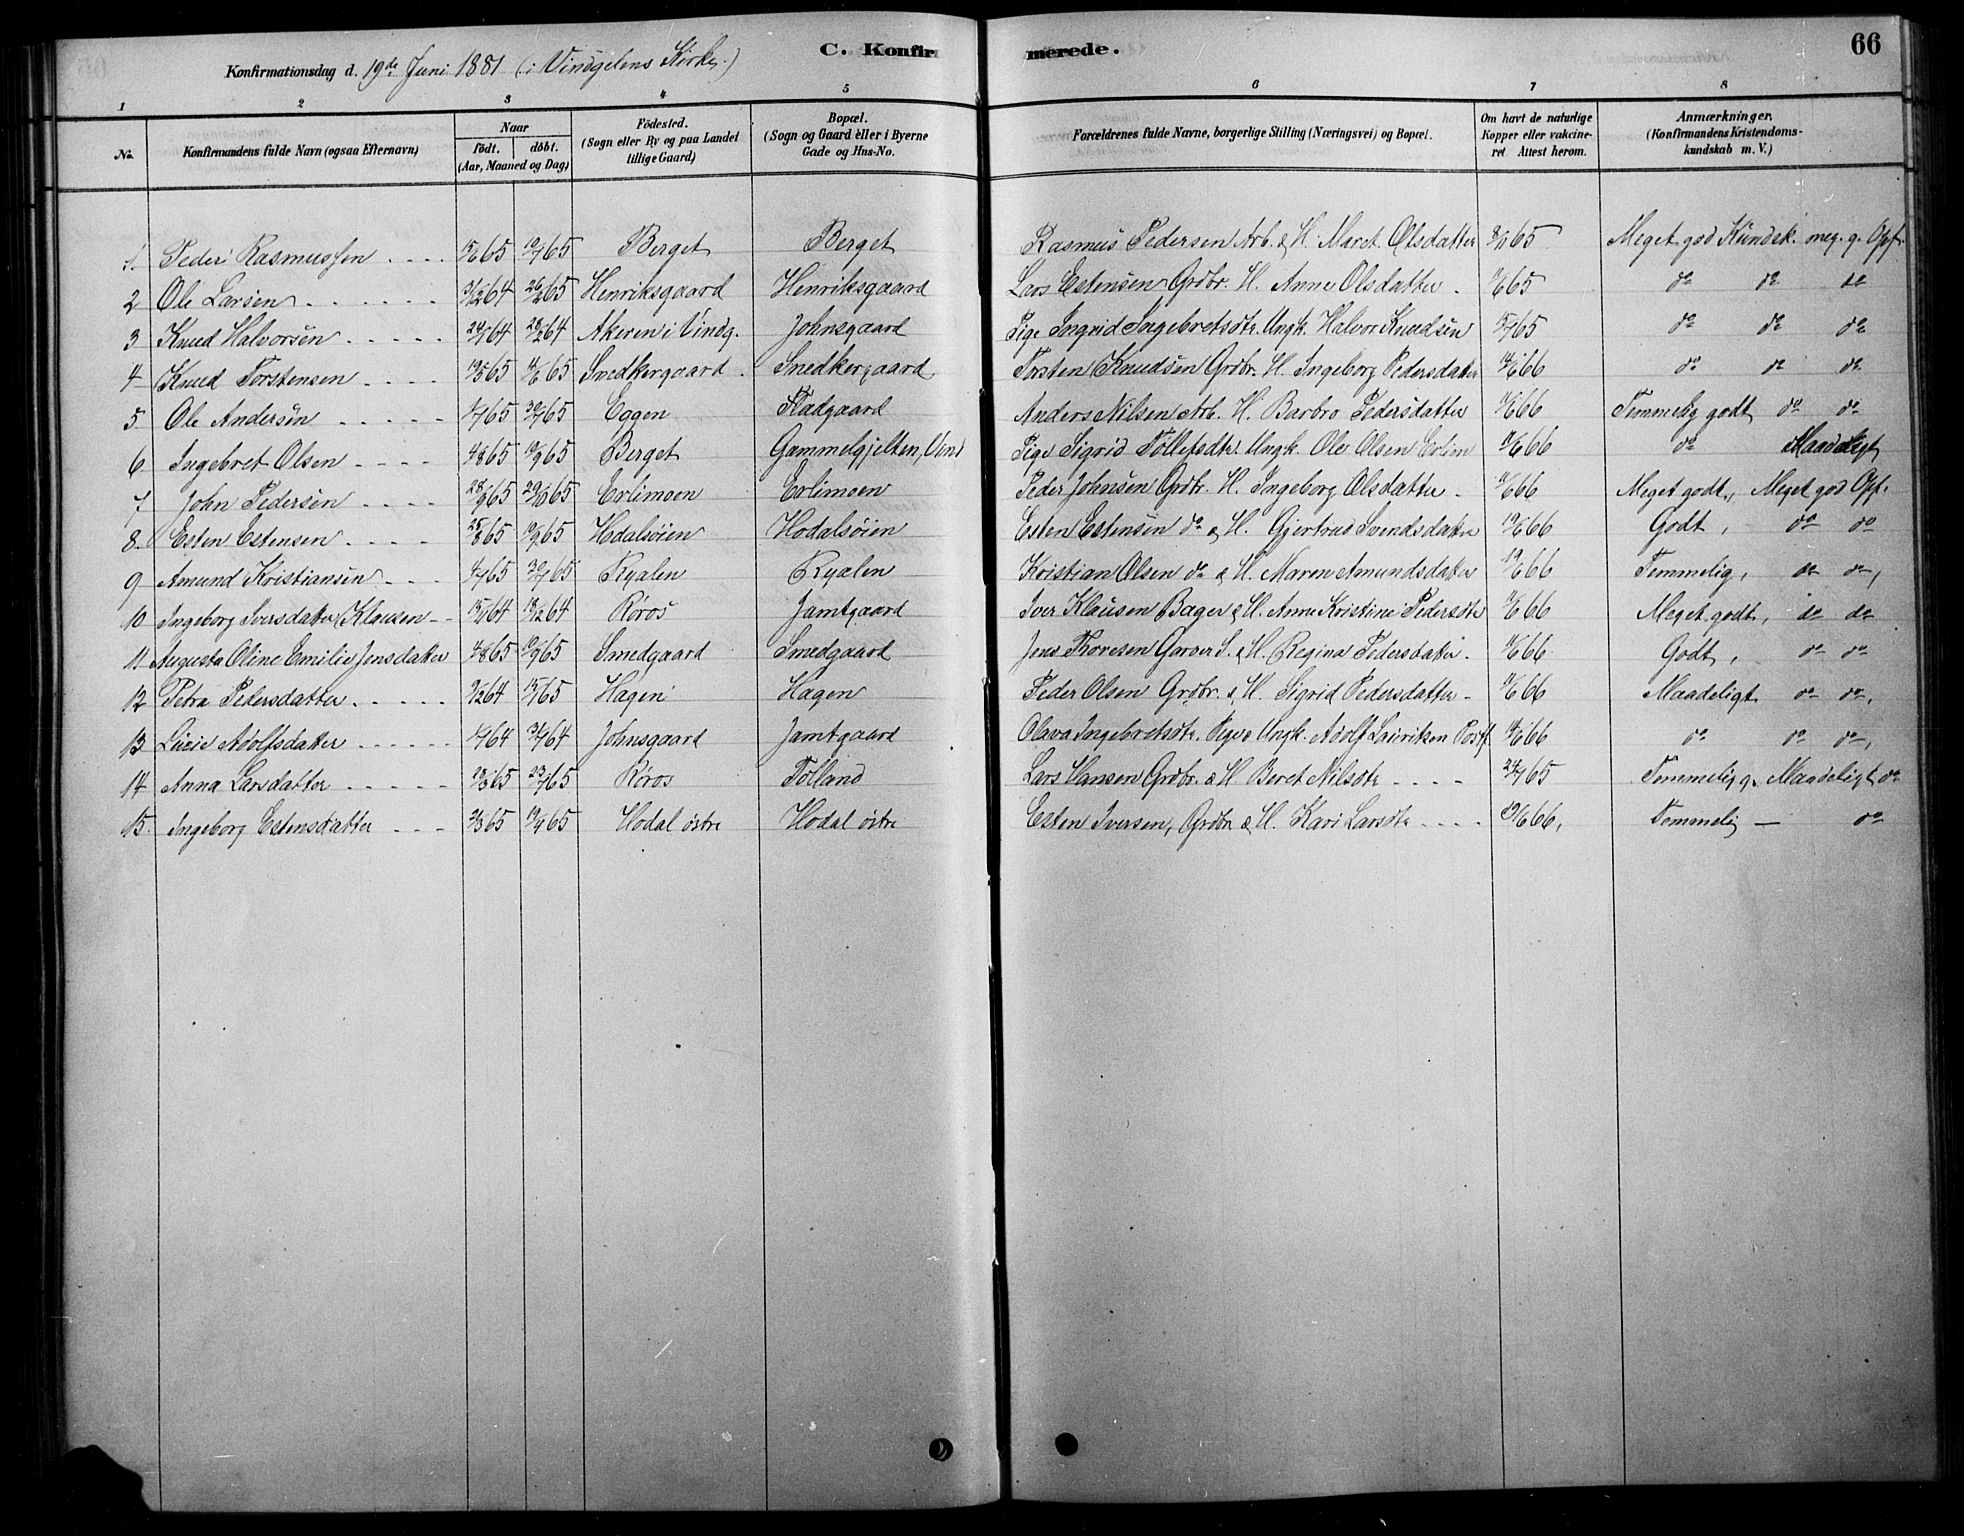 C. Konfirmerede.
66
Konfirmationsdag d. 19de Juni 1881 (i Vindgelens Kirke.)
1 2 3 4 5 6 7 8
No. Konfirmandens fulde Navn (ogsaa Efternavn) Naar født. døbt. (Aar, Maaned og Dag) Fødested. (Sogn eller By og paa Landet tillige Gaard) Bopæl. (Sogn og Gaard eller i Byerne Gade og Hus-No. Forældrenes fulde Navne, borgerlige Stilling (Næringsvei) og Bopæl. Om havt de naturlige Kopper eller vakcineret Attest herom. Anmærkninger. (Konfirmandens Kristendomskundskab m. V.)
1. Peder Rasmussen 65 65 Berget Berget Rasmus Pedersen Arb. & H. Maret Olsdatter 65 Meget god Kundsk. meg. g. Opf.
2 Ole Larsen 64 65 Henriksgaard Henriksgaard Lars Estensen Grdbr. H. Anne Olsdatter 65 do do do
3 Knud Halvorsen 64 64 Akeren i Vindg. Johnsgaard Pige Ingrid Ingebretsdtr. Ungk. Halvor Knudsen 65 do do do
4 Knud Torstensen 65 65 Snedkergaard Snedkergaard Torsten Knudsen Grdbr. H. Ingeborg Pedersdatter 66 do do do
5 Ole Andersen 65 65 Eggen Fladgaard Anders Nilsen Arb. H. Barbro Pedersdatter 66 Temmelig godt do do
6 Ingebret Olsen 65 65 Berget Gammelgjelten, Vind Pige Sigrid Tollefsdtr. Ungk. Ole Olsen Erlien 66 do Maadeligt
7 John Pedersen 65 65 Erlimoen Erlimoen Peder Johnsen Grdbr. H. Ingeborg Olsdatter 66 Meget godt, Meget god Opf.
8 Esten Estensen 65 65 Hodalsøien Hodalsøien Esten Estensen do & H. Gjertrud Svendsdatter 66 Godt, do do
9 Amund Kristiansen 65 65 Ryalen Ryalen Kristian Olsen do & H. Maren Amundsdatter 66 Temmelig, do do,
10 Ingeborg Iversdatter Klausen 64 64 Røros Jamtgaard Iver Klausen Bager & H. Anne Kristine Pedersdtr 66 Meget godt, do do
11 Augusta Oline Emilie Jensdatter 65 65 Smedgaard Smedgaard Jens Garver S. & H. Regina Pedersdatter 66 Godt, do do
12 Petra Pedersdatter 64 65 Hagen Hagen Peder Olsen Grdbr. & H. Sigrid Pedersdatter 66 Maadeligt do do,
13 Lucie Adolfsdatter 64 64 Johnsgaard Jamtgaard Olava Ingebretsdtr. Pige & Ungk. Adolf Lauritsen Postf 66 do do do,
14 Anna Larsdatter 65 65 Røros Tolland Lars Hansen Grdbr. & H. Beret Nilsdtr 65 Temmelig g. Maadeligt do
15. Ingeborg Estensdatter 65 65 Hodal østre Hodal østre Esten Iversen, Grdbr & H. Kari Larsdtr 66, Temmelig — do